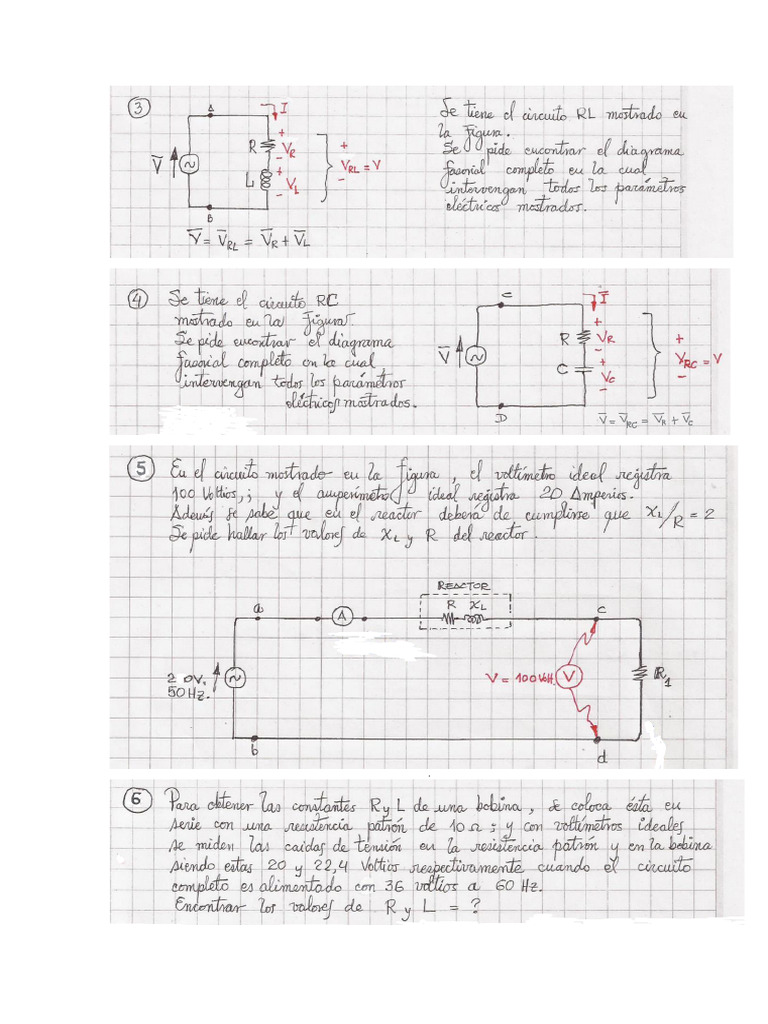 3
Se tiene el circuito RL mostrado en
la figura.
Se pide encontrar el diagrama
fasorial completo en la cual
intervengan todos los parámetros
eléctricos mostrados.
A
I
+
R
VR
-
V
+
L
VL
-
+
VRL = V
-
B
V = VRL = VR + VL
4
Se tiene el circuito RC
mostrado en la figura.
Se pide encontrar el diagrama
fasorial completo en la cual
intervengan todos los parámetros
eléctricos mostrados.
C
I
+
R
VR
-
V
+
C
VC
-
+
VRC = V
-
D
V = VRC = VR + VC
5
En el circuito mostrado en la figura, el voltímetro ideal registra
100 Voltios,; y el amperímetro ideal registra 20 Amperios.
Además se sabe que en el reactor deberá de cumplirse que XL/R = 2
Se pide hallar los valores de XL y R del reactor.
REACTOR
R XL
a
A
c
2 0V.
50Hz.
V = 100Volt.
V
R1
b
d
6
Para obtener las constantes R y L de una bobina, se coloca ésta en
serie con una resistencia patrón de 10 Ω; y con voltímetros ideales
se miden las caidas de tensión en la resistencia patrón y en la bobina
siendo estas 20 y 22,4 Voltios respectivamente cuando el circuito
completo es alimentado con 36 voltios a 60 Hz.
Encontrar los valores de R y L = ?